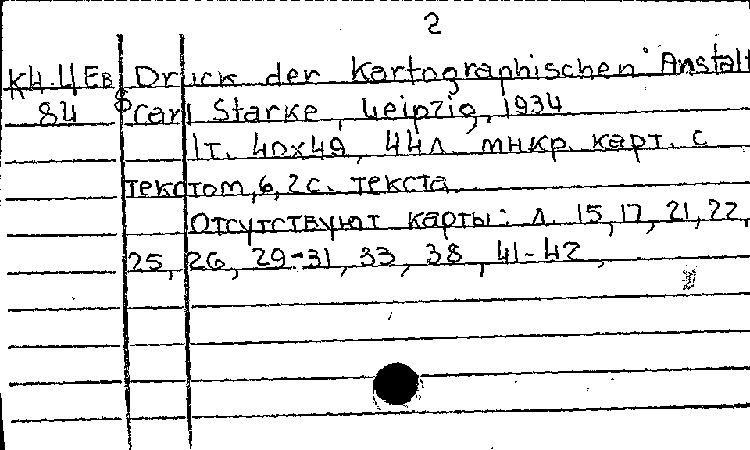 2
К4.4Ев Druck der Kartographischen Anstalt
84 Carl Starke, Leipzig, 1934
1т. 40х49, 44л. мнкр. карт. с
текстом, 6, 2с. текста
Отсутствуют карты: л. 15, 17, 21, 22,
25, 26, 29-31, 33, 38, 41-42,